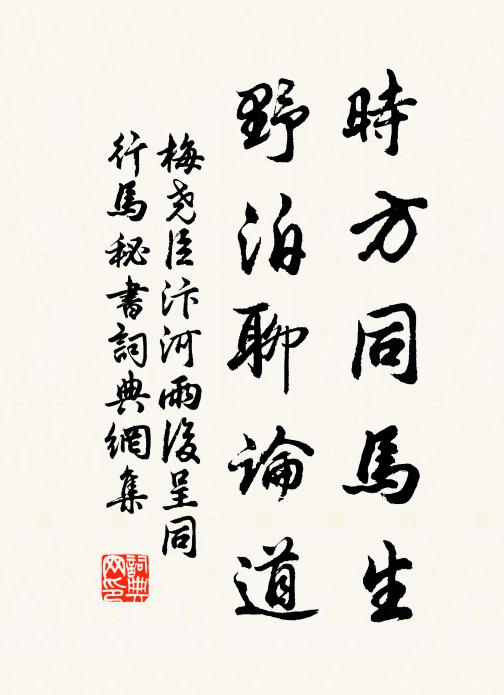 時方同馬生
野泊聊論道
梅尧臣汴河雨後呈同
行馬秘書詞典網集
詞典
网印